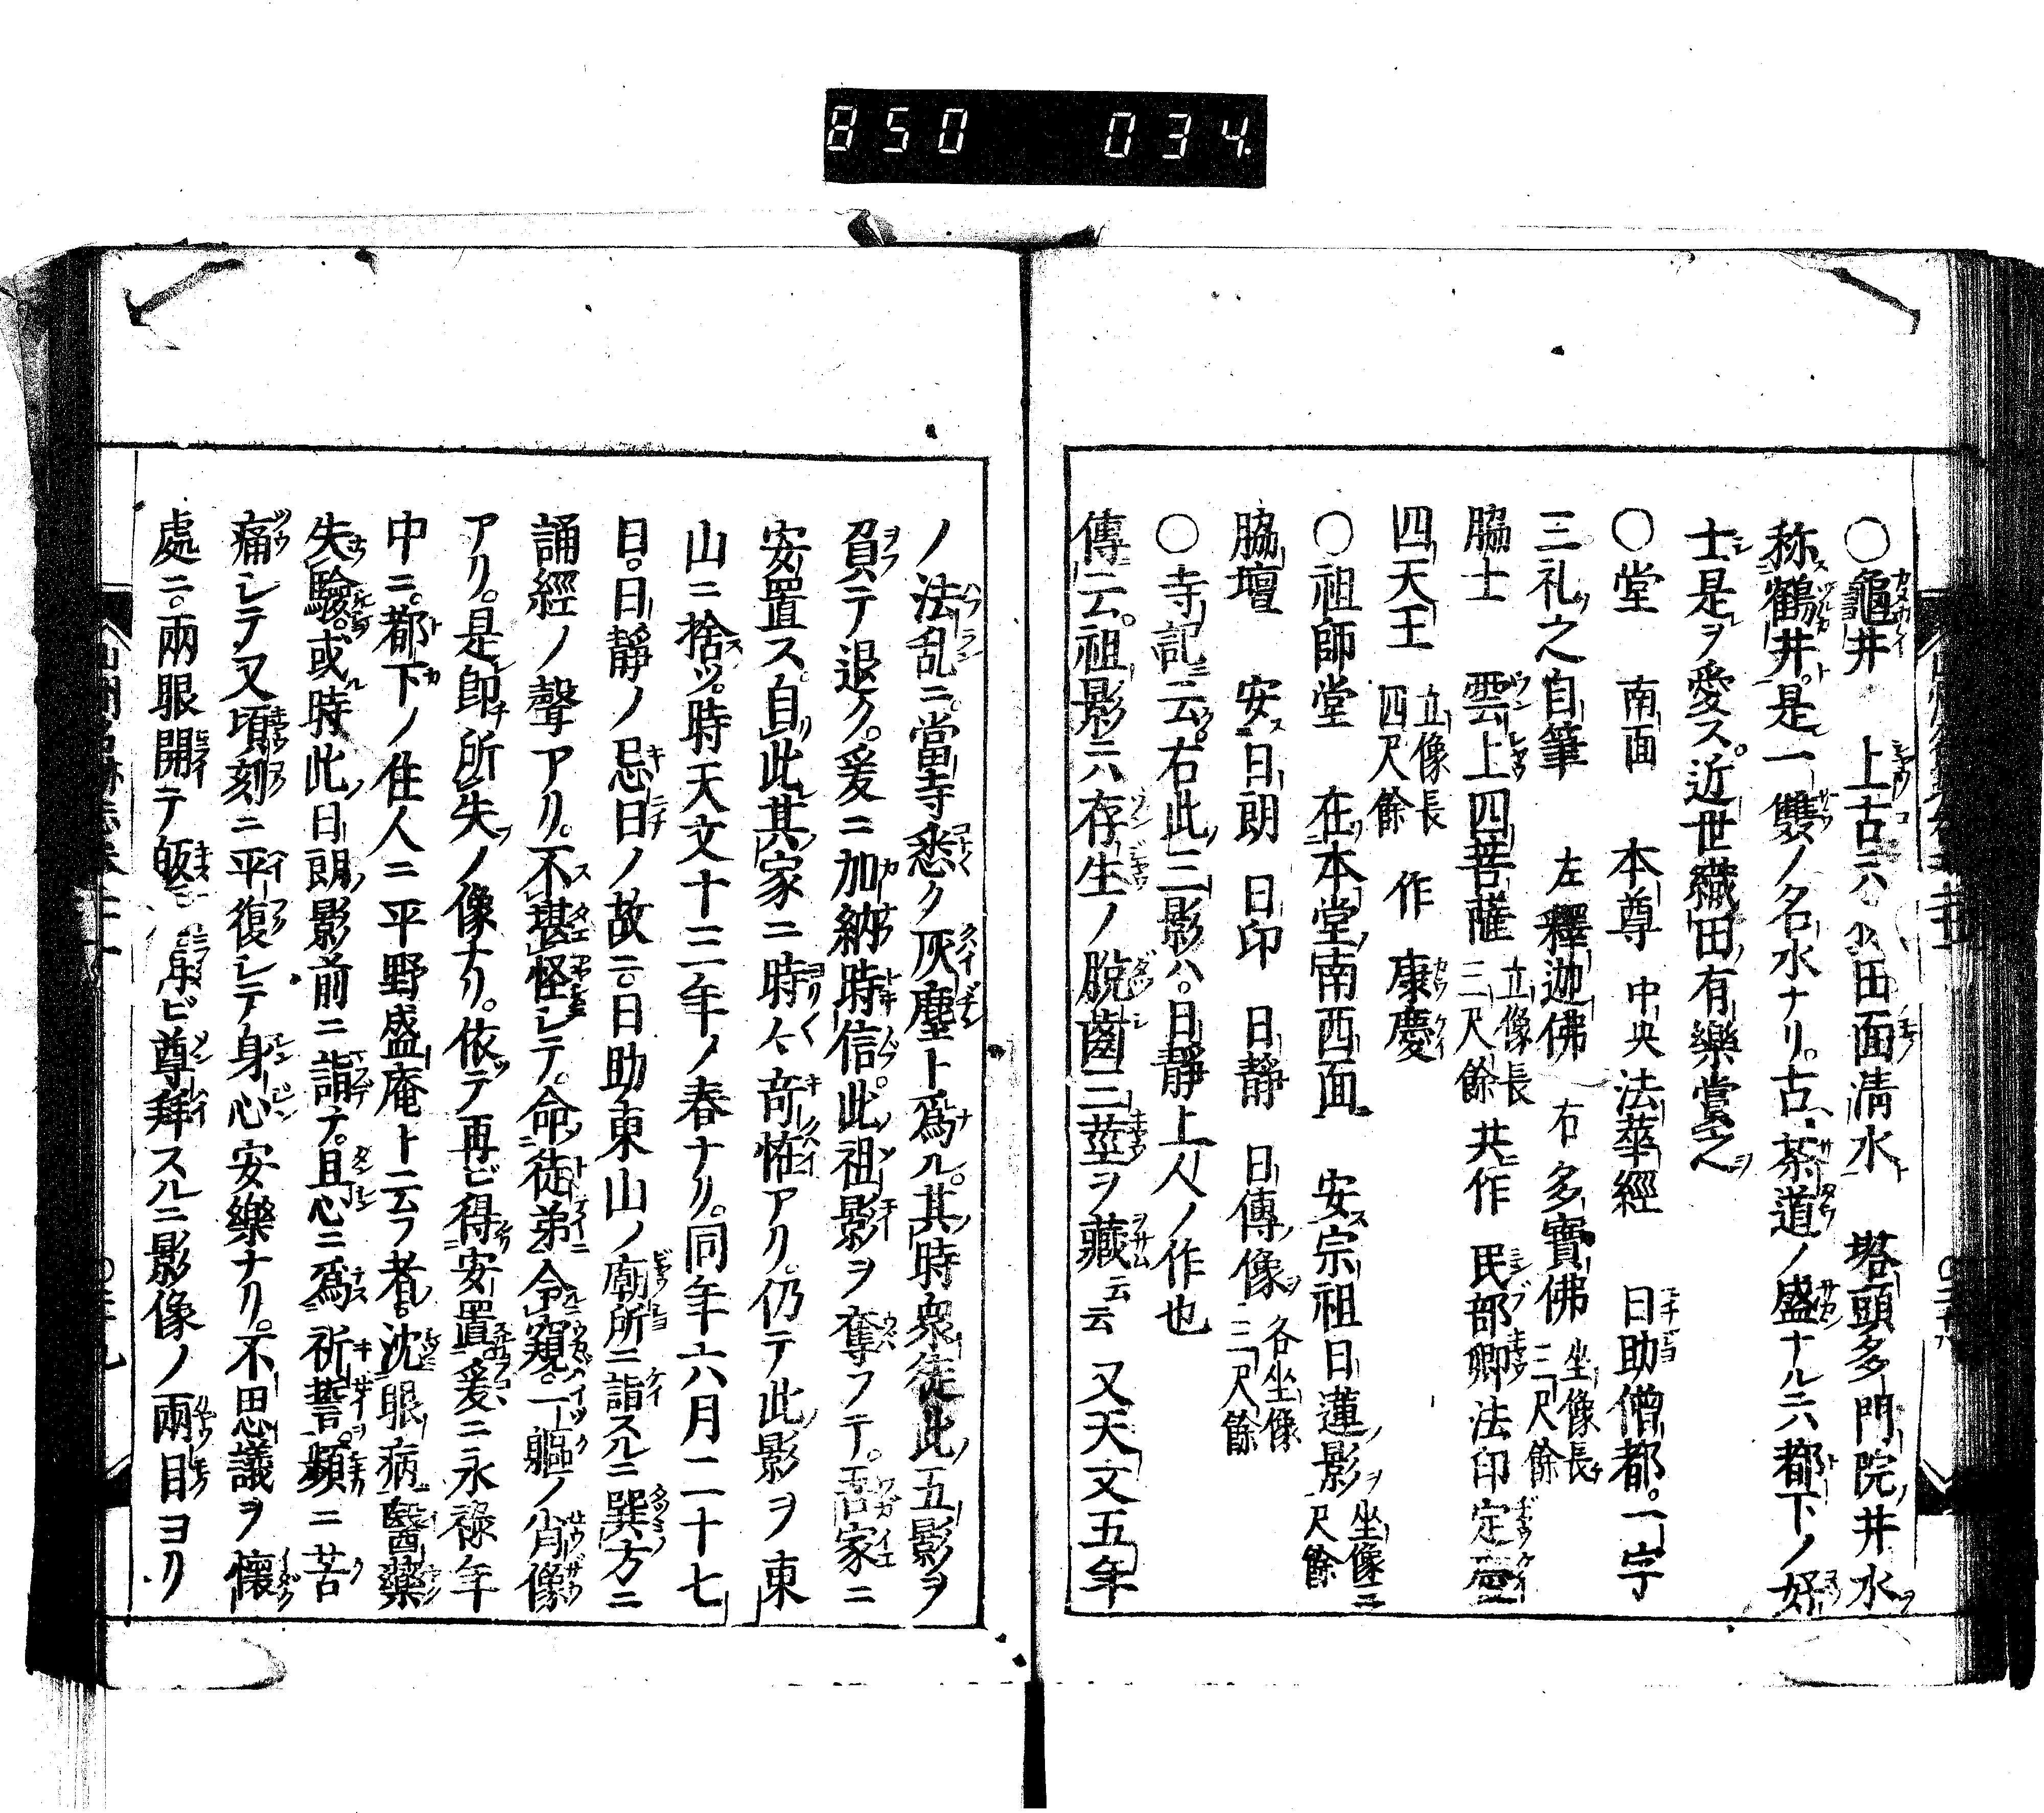 850 034
○龜井 上古ニハ 田面清水 塔頭多門院井水
称鶴井是一雙ノ名水ナリ。古、茶道ノ盛ナル六都下ノ好
士是ヲ愛ス。近世織田有樂賞之
○堂 南面 本尊 中央 法華經 日助僧都。一字
三礼之自筆 左 釋迦佛 右 多寶佛 坐像長三尺餘
脇士 雲上四菩薩 立像長三尺餘 共作 民部卿法印定慶
四天王 立像長四尺餘 作 康慶
○祖師堂 在本堂南西面 安宗祖日蓮影 坐像二尺餘
脇壇 安日朗 日印 日靜 日傳像 各坐像三尺餘
○寺記云。右此三影ハ。日靜上人ノ作也
傳云。祖影ニハ存生ノ脱齒三莖ヲ藏云云 又天文五年
ノ法乱ニ。當寺悉ク灰塵ト爲ル。其時衆徒此五影ヲ
負テ退ク。爰ニ加納時信。此祖影ヲ奪フテ。吾家ニ
安置ス。自此其家ニ時々竒怪アリ。仍テ此影ヲ東
山ニ捨ツ。時天文十三年ノ春ナリ。同年六月二十七
日。日靜ノ忌日ノ故ニ。日助東山ノ廟所ニ詣スルニ巽方ニ
誦經ノ聲アリ。不堪怪シテ。命徒弟令窺。一軀ノ肖像
アリ。是卽所失ノ像ナリ。依テ再ビ得安置爰ニ永祿年
中ニ。都下ノ住人ニ平野盛庵ト云フ者。沈眼病醫藥
失驗。或時此日朗影前ニ詣テ。且心ニ爲祈誓。頻ニ苦
痛シテ又頃刻ニ平復シテ身心安樂ナリ。不思議ヲ懷
處ニ。兩眼開テ ビ尊拜スルニ影像ノ兩目ヨリ